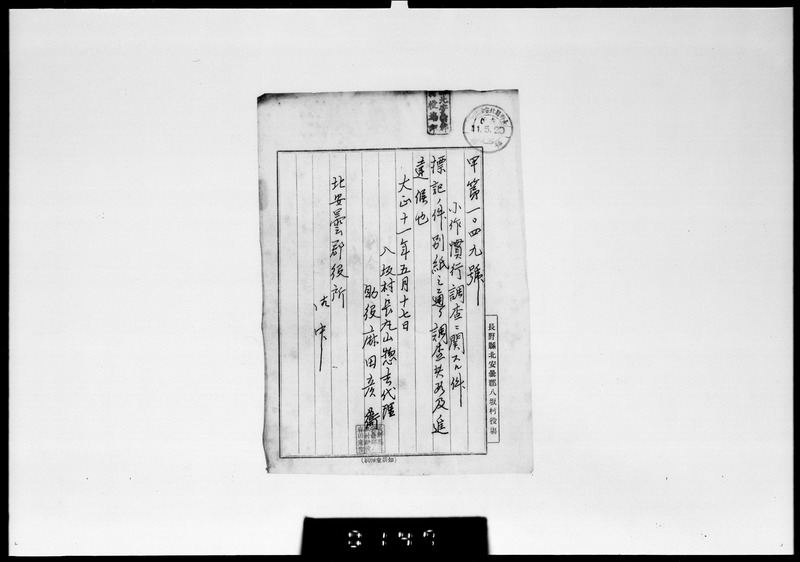 甲第一〇四九號
小作慣行調査ニ関スル件
標記ノ件別紙之通リ調査候及進
達候也
大正十一年五月十七日
八坂村長丸山惣吉代理
助役麻田彦衛
北安曇郡役所
御中
長野縣北安曇郡八坂村役場
11.5.20
0147